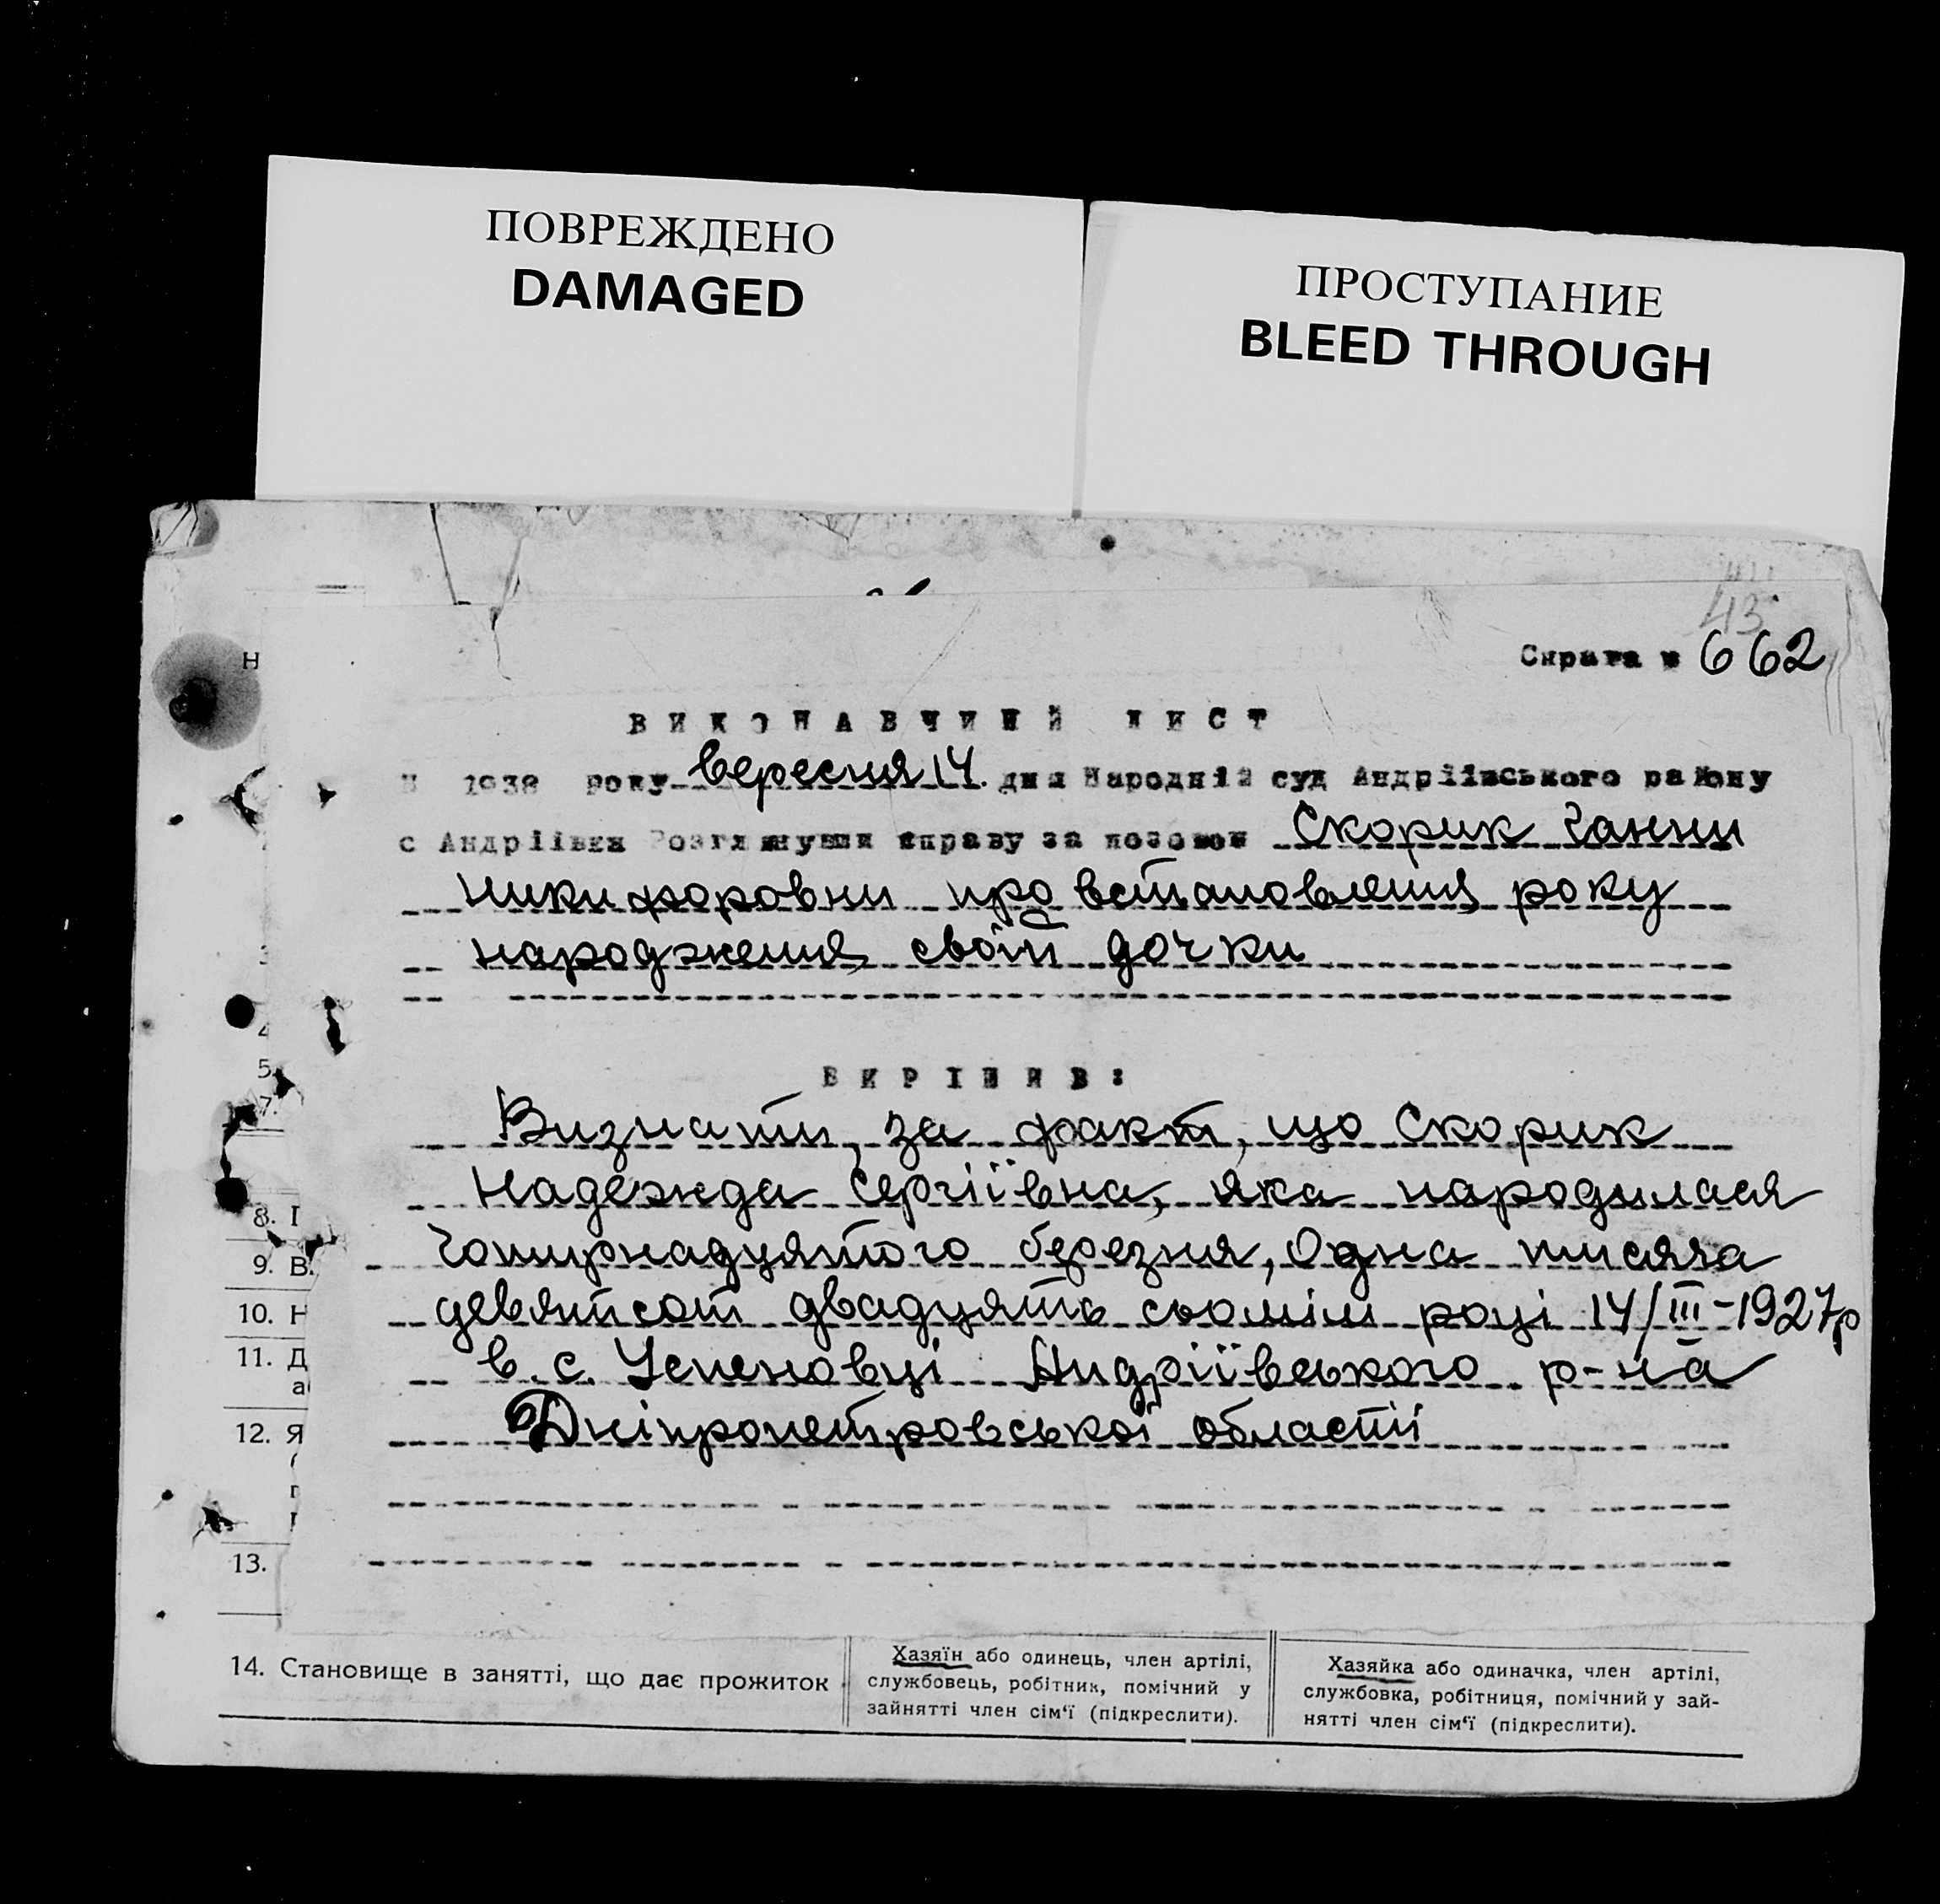 ПОВРЕЖДЕНО
DAMAGED
ПРОСТУПАНИЕ
BLEED THROUGH
43
Справа № 662
Н
ВИКОНАВЧИЙ ЛИСТ
1938 року вересня 14 дня Народній суд Андріївського району
с Андріївка Розглянувши справу за позовом Скорик Ганни
Никифоровни про встановлення року
народження своїй дочки
ВИРІШИВ:
Визнати за факт, що Скорик
Надежда Сергіївна, яка народилася
Чотирнадцятого березня, Одна тисяча
девятсот двадцять сьомім році 14/III-1927р
в с. Успеновці Андріївського р-на
Дніпропетровської області
4
5.
7.
8. І
9. В
10. Н
11. Д
а
12. Я
13.
14. Становище в занятті, що дає прожиток
Хазяїн або одинець, член артілі,
службовець, робітник, помічний у
зайнятті член сім'ї (підкреслити).
Хазяйка або одиначка, член артілі,
службовка, робітниця, помічний у зай-
нятті член сім'ї (підкреслити).